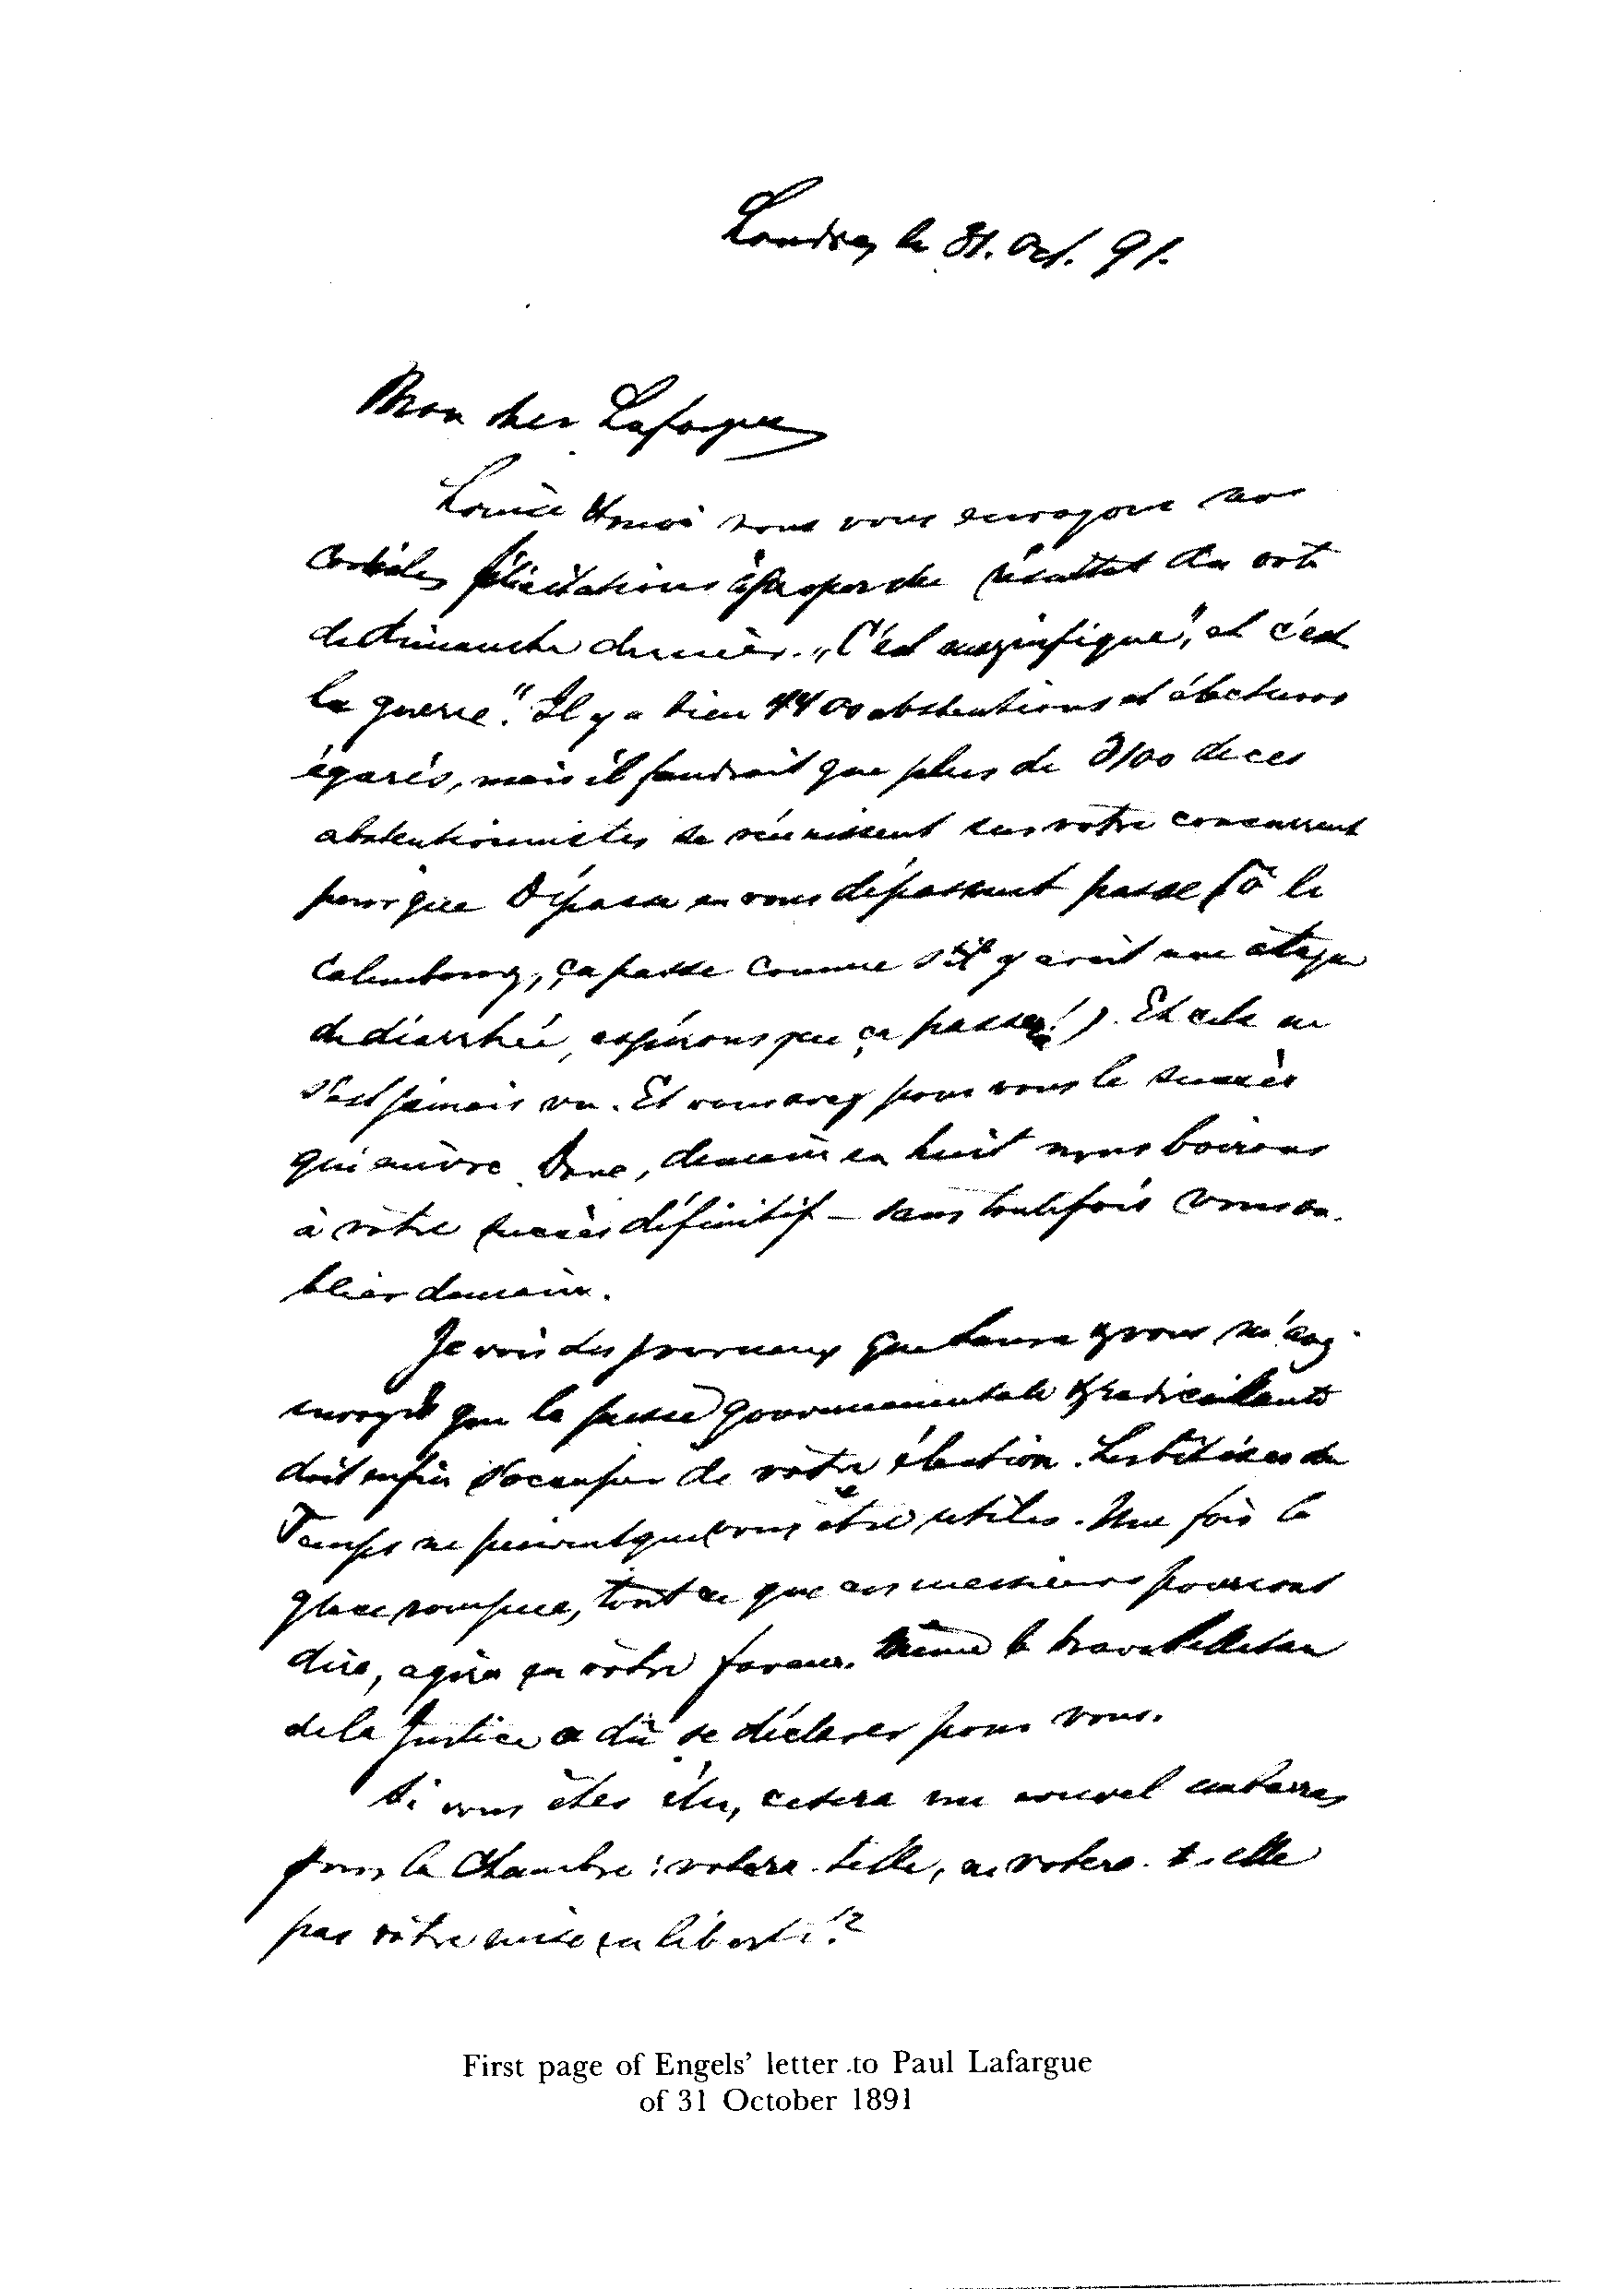 Londres, le 31. Oct. 91.
Mon cher Lafargue
Louise & moi nous vous envoyons nos
cordiales félicitations à propos du résultat du vote
de dimanche dernier. „C'est magnifique", et c'est
la guerre." Il y a bien 4400 abstentions et électeurs
égarés, mais il faudrait que plus de 3100 de ces
abstentionnistes se réunissent sur votre concurrent
pour que Dépassa en vous dépassant passe (ô le
calembourg, ça passe comme s'il y avait une attaque
de diarrhée, espérons que ça passera!). Et cela ne
s'est jamais vu. Et vous avez pour vous le succès
qui enivre. Donc, demain en huit nous boirons
à votre succès définitif – sans toutefois vous ou-
blier demain.
Je vois des journaux que Laura & vous m'avez
envoyés que la presse gouvernementale & radicaillante
doit enfin s'occuper de votre élection. Les bêtises du
Temps ne peuvent que vous être utiles. Une fois la
glace rompue, tout ce que ces messieurs pourront
dire, agira en votre faveur. Même le brave Pelletan
de la Justice a dû se déclarer pour vous.
Si vous êtes élu, ce sera un nouvel embarras
pour la Chambre: votera-t-elle, ne votera-t-elle
pas votre mise en liberté?
First page of Engels' letter to Paul Lafargue
of 31 October 1891